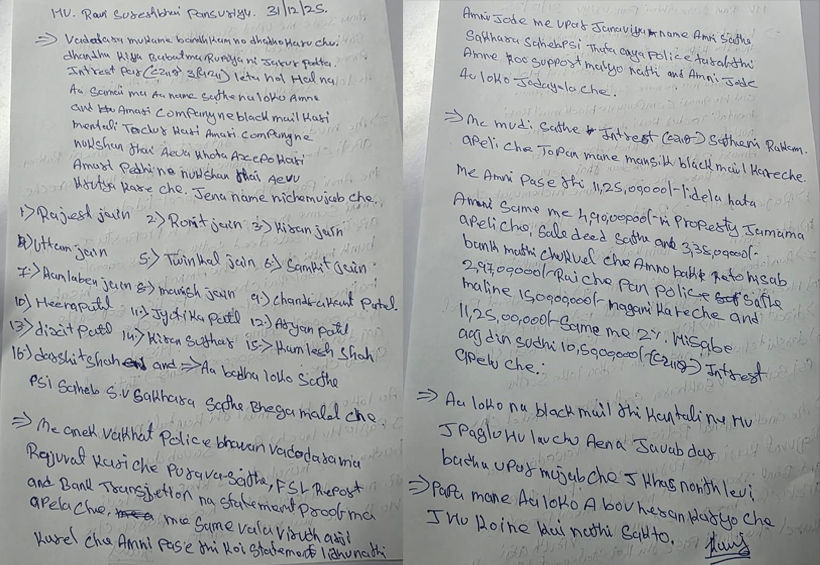 HU. Ravi Sureshbhai Pansuriya. 31/12/25.
=> Vadodara mukame bandhkam no dhandho karu chu.
dhandhu kiya Babatma Rupiya ni Jarur padta
Intrest par (વ્યાજે) leta hoi
Au Samai ma Au name sathe na loko Amne
and Amari Company ne black mail kari
mentali Torchur kari Amari Company ne
nukshan thai Aeva khota Axepo kari
Amari Pedhi ne nukshan thai Aevu
Krutya kare che. Jena name niche mujab che.
1) Rajesh jain 2) Ronit jain 3) kiran jain
4) Uttam jain 5) Twinkal jain 6) Samkit jain
7) Hamlaben jain 8) manish jain 9) Chandrakant Patel.
10) Heena patel 11) Jyotika patel 12) Aryan patel
13) dixit patel 14) kiran suthar 15) kamlesh shah
16) darshit shah and => Aa badha loko sathe
PSI Saheb S.V Sakhara Sathe Bhega malel che.
=> Me anek vakhat Police bhavan vadodara ma
Rajuvat kari che Purava-Sathe, FSL Report
and Bank Transjetion na statement proof ma
apela che, me Same vala virudh arji
karel che Amni Pase thi koi Statement lidhu nathi
Amni Jode me upar Janaviya name Amni Sathe
Sakhara Saheb PSI Thata aya Police tarafthi
Amne koi support malyo nathi and Amni Jode
Aa loko Jodayela che.
=> Me mudi sathe Intrest (વ્યાજ) Sathani Rakam.
apeli che To pan mane mansik black mail kare che.
me Amni Pase thi 11,25,00000/- lidela hata
Amni Same me 4,90,00000/- ni Property Jama ma
apeli che, Sale deed sathe and 3,35,00000/-
bank mathi chukvel che Amno baki hisab
2,97,00000/- Rai che Pan police sathe
maline 15,0000000/- magani kare che and
11,25,00,000/- Same me 2%. Hisabe
aaj din sudhi 10,50,00000/- (વ્યાજ) Intrest
apelu che.
=> Aa loko na black mail thi kantali ne Hu
J Paglu Hu lav chu Aena Javab dar
badha upar mujab che J khas nondh levi
=> Papa mane Aa loko A bov heran karyo che
J Hu koine kai nathi Sakto.
Ravi